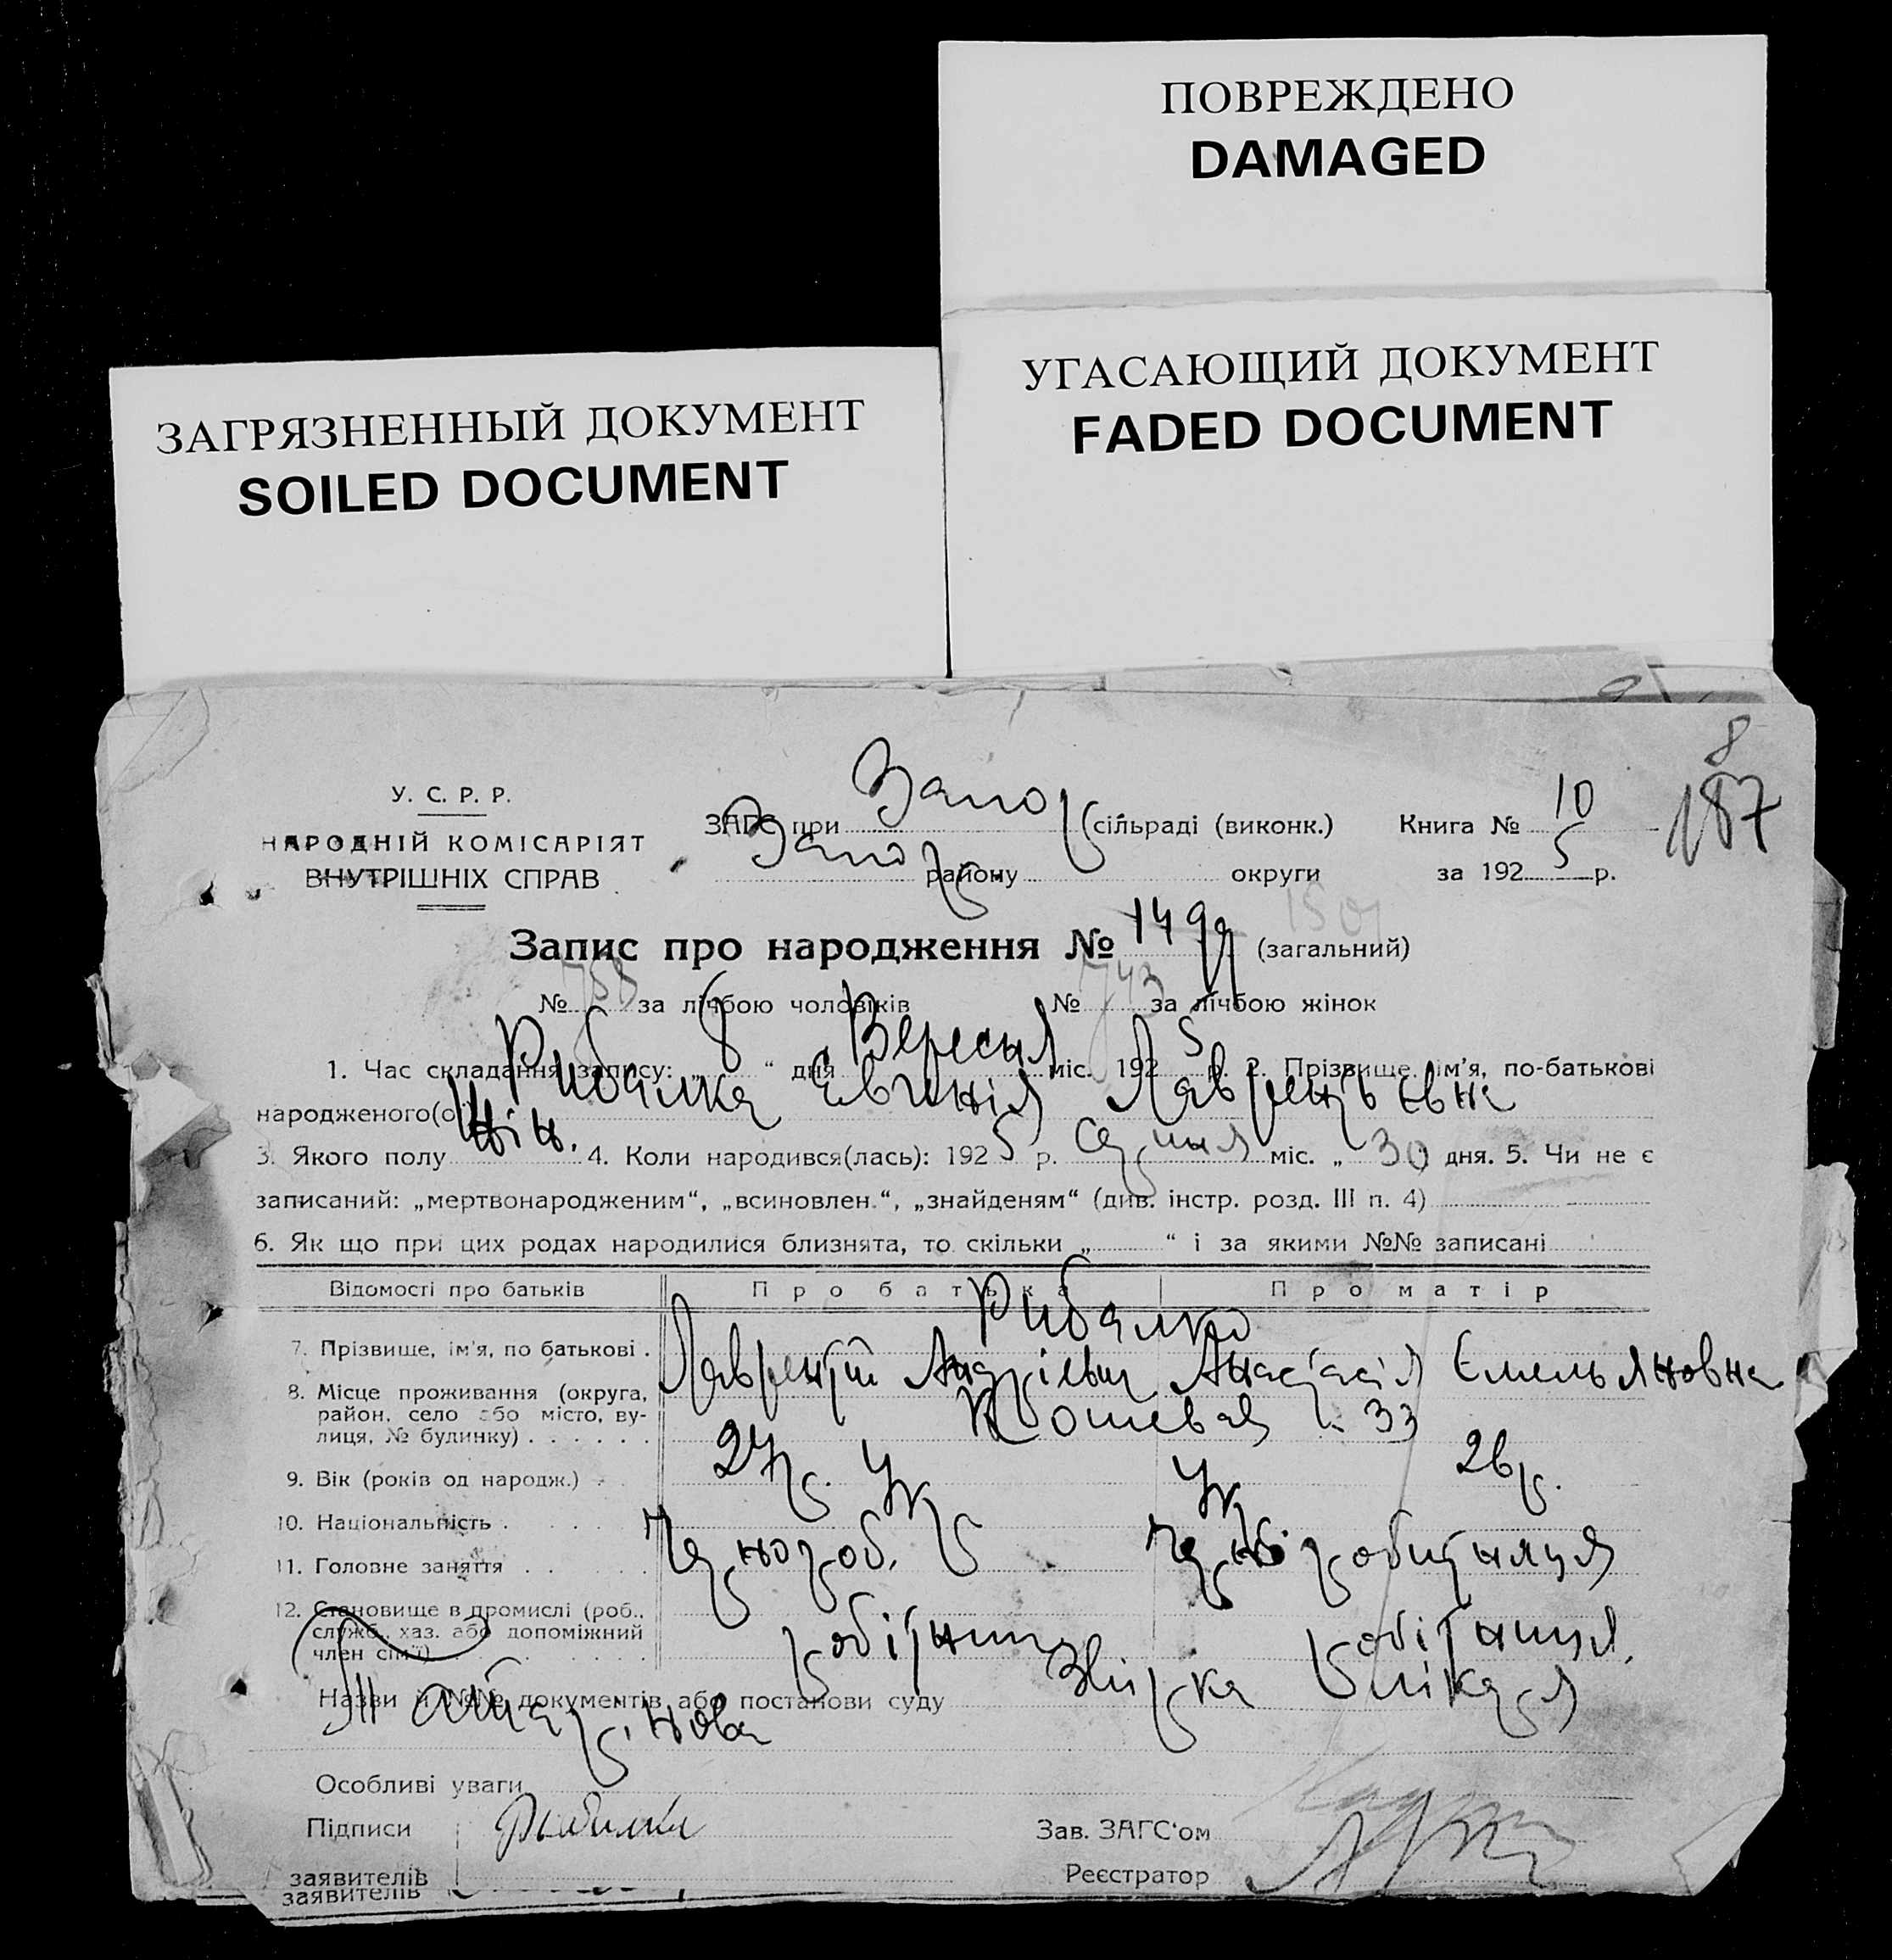 ПОВРЕЖДЕНО
DAMAGED
УГАСАЮЩИЙ ДОКУМЕНТ
FADED DOCUMENT
ЗАГРЯЗНЕННЫЙ ДОКУМЕНТ
SOILED DOCUMENT
8
187
У. С. Р. Р.
НАРОДНІЙ КОМІСАРІЯТ
ВНУТРІШНІХ СПРАВ
ЗАГС при Запор сільраді (виконк.) Книга № 10
Запор району округи за 1925 р.
Запис про народження № 1499 (загальний) 1501
№ 758 за лічбою чоловіків № 743 за лічбою жінок
1. Час складання запису: „ 8 “ дня Вересня міс. 1925 р. 2. Прізвище, ім'я, по-батькові
народженого(ої) Рибалка Євгенія Лаврентьевна
3. Якого полу жін. 4. Коли народився(лась): 1925 р. серпня міс. „ 30 дня. 5. Чи не є
записаний: „мертвонародженим“, „всиновлен.“, „знайденям“ (див. інстр. розд. III п. 4)
6. Як що при цих родах народилися близнята, то скільки „ “ і за якими №№ записані
Відомості про батьків Про батька Про матір
Рибалко
7. Прізвище, ім'я, по батькові . Лаврентій Андрієвич Анастасія Ємельяновна
8. Місце проживання (округа,
район, село або місто, ву-
лиця, № будинку) . . . . . . Кошевая 33
9. Вік (років од народж.) 27 р. 26 р.
10. Національність . Укр Укр
11. Головне заняття . . Чорнороб. Чорноробітниця
12. Становище в промислі (роб.,
служб., хаз. або допоміжний
член сім'ї) робітник робітниця
Назви й №№ документів або постанови суду
Особливі уваги
Підписи Рыбалка Зав. ЗАГС'ом
заявителів Реєстратор
заявителів